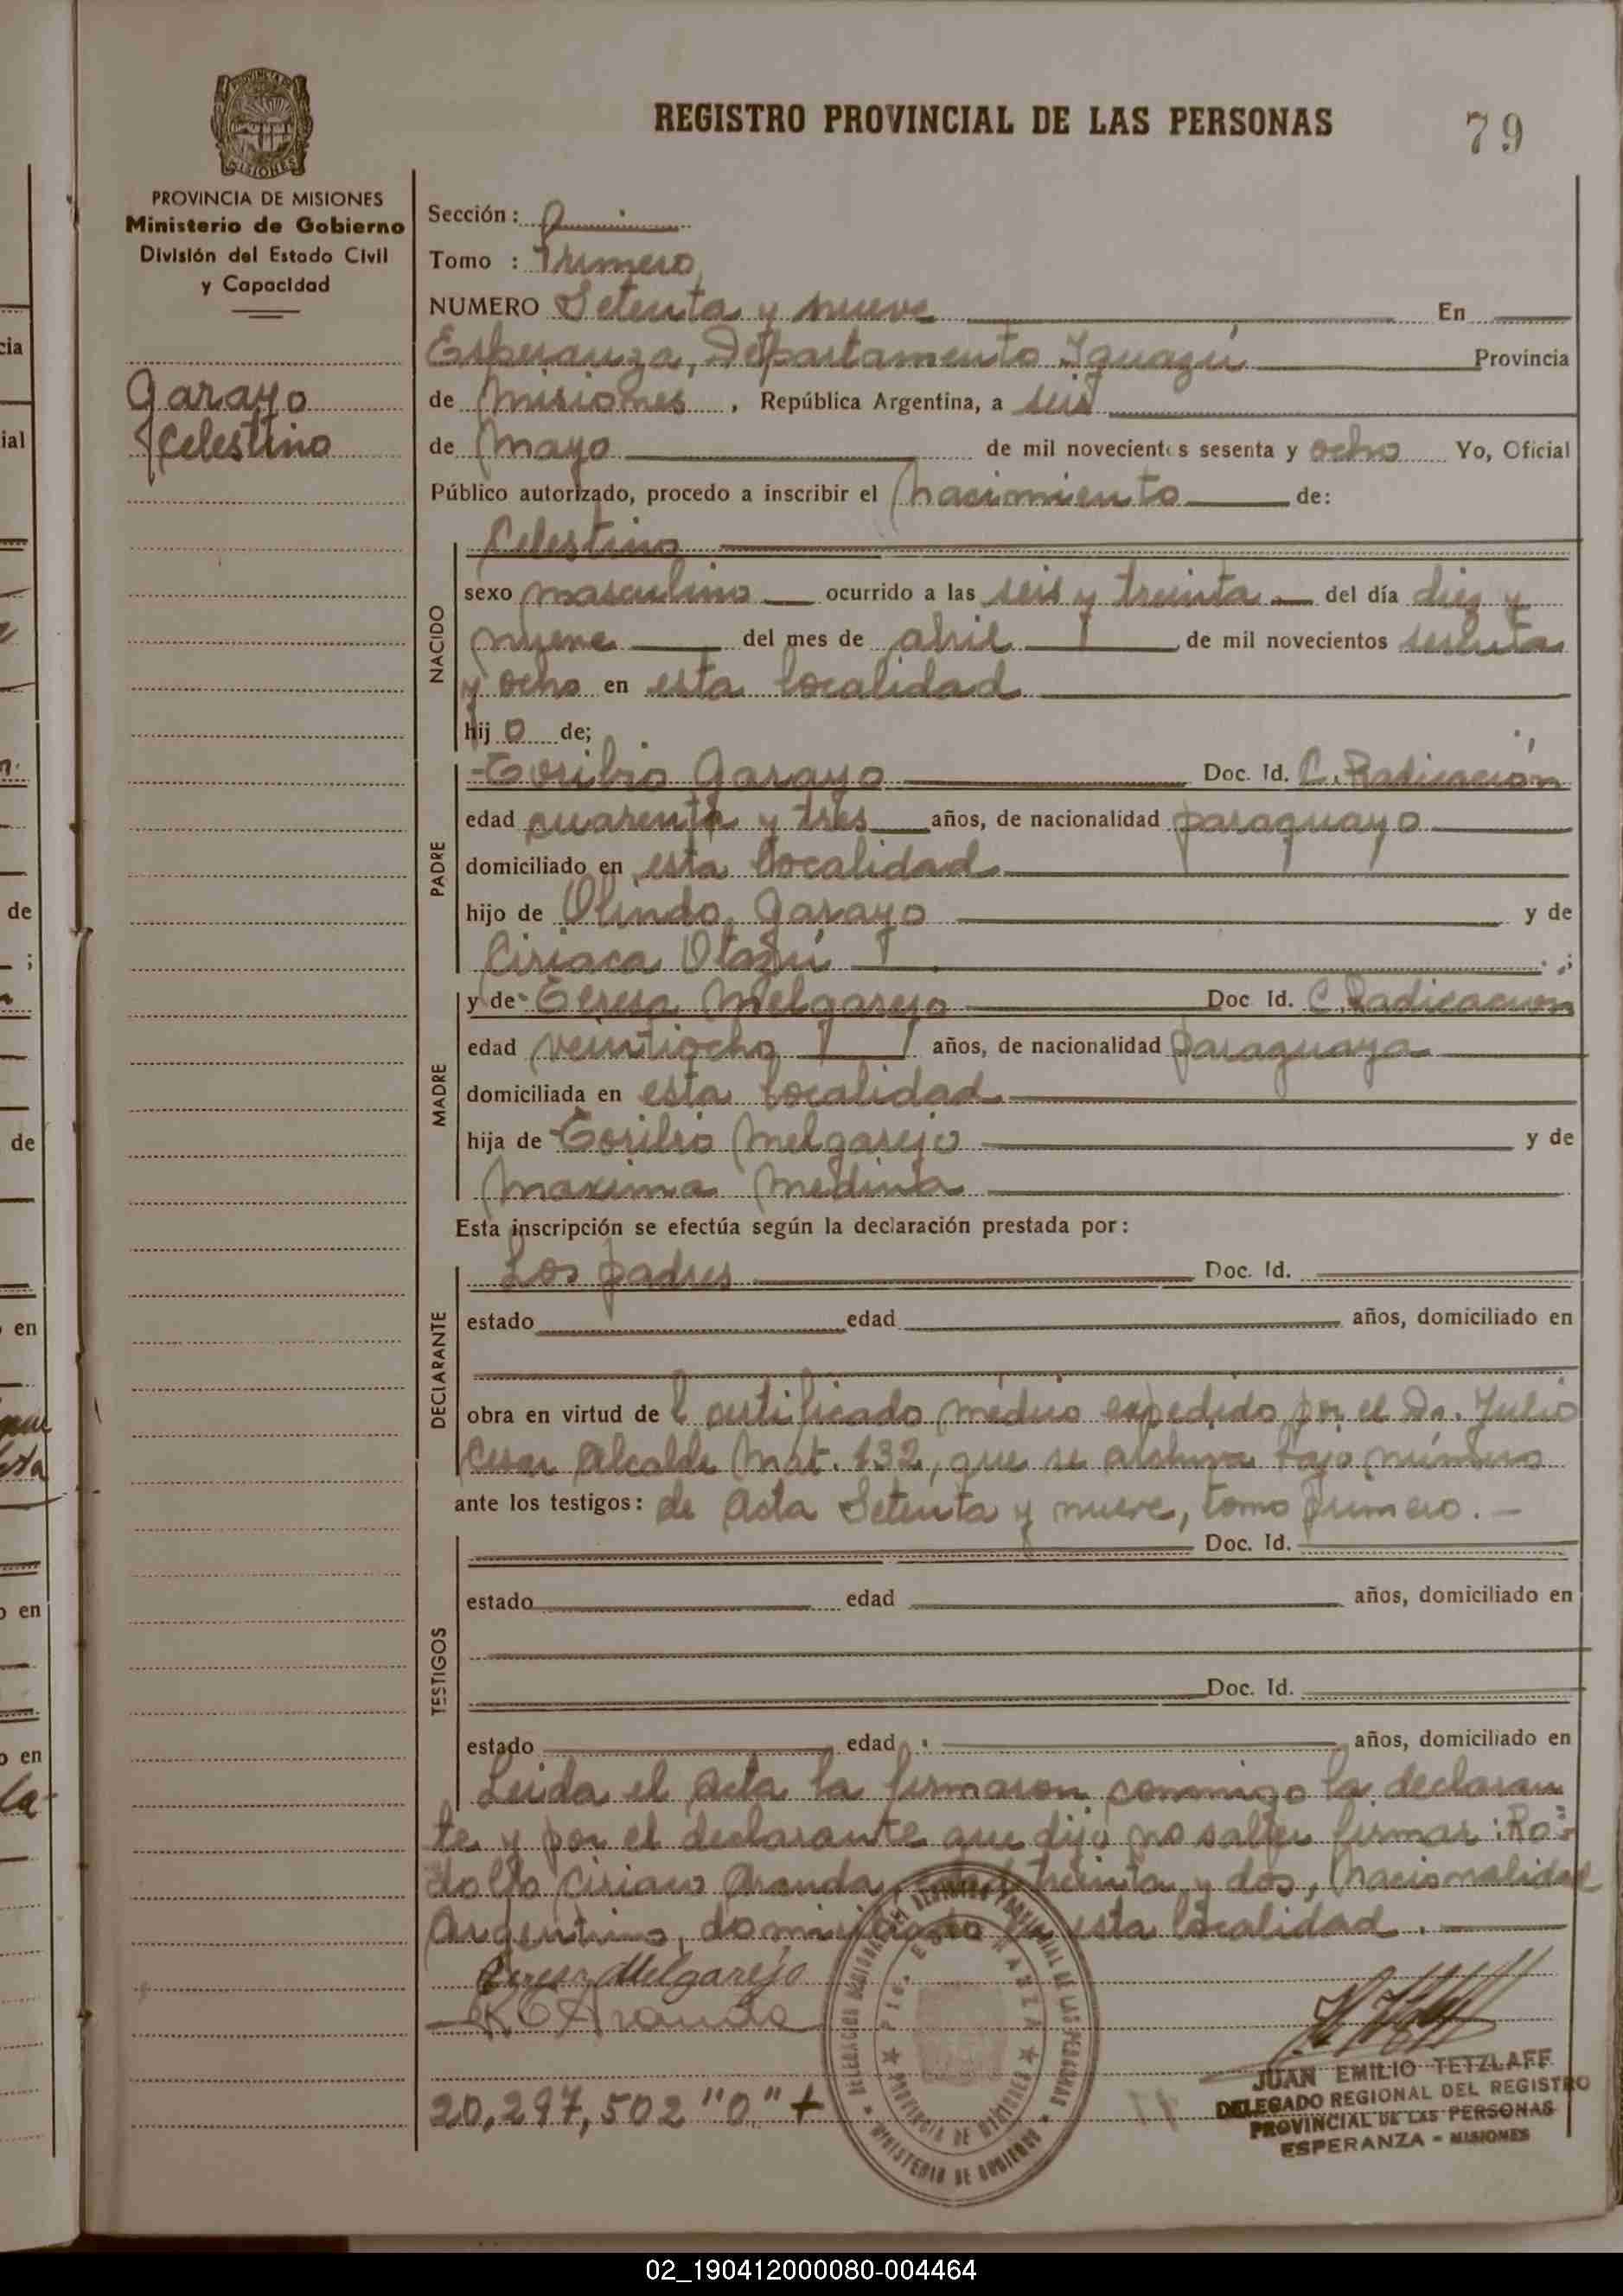 REGISTRO PROVINCIAL DE LAS PERSONAS
79
PROVINCIA DE MISIONES
Ministerio de Gobierno
División del Estado Civil
y Capacidad
Garayo
Celestino
Sección:
Tomo : Primero
NUMERO Setenta y nueve En
Esperanza, Departamento Iguazú Provincia
de Misiones, República Argentina, a seis
de Mayo de mil novecientos sesenta y ocho Yo, Oficial
Público autorizado, procedo a inscribir el Nacimiento de:
Celestino
NACIDO
sexo masculino ocurrido a las seis y treinta del día diez y
nueve del mes de abril de mil novecientos sesenta
y ocho en esta localidad
hijo de;
PADRE
Toribio Garayo Doc. Id. C. Radicación
edad cuarenta y tres años, de nacionalidad paraguayo
domiciliado en esta localidad
hijo de Olindo Garayo y de
Ciriaca Otazú
MADRE
y de Teresa Melgarejo Doc Id. C. Radicacion
edad veintiocho años, de nacionalidad paraguaya
domiciliada en esta localidad
hija de Toribio Melgarejo y de
Maxima Medina
Esta inscripción se efectúa según la declaración prestada por:
DECLARANTE
Los padres Doc. Id.
estado edad años, domiciliado en
obra en virtud del certificado médico expedido por el Dr. Julio
Cesar Alcalde Mat. 132, que se archiva bajo número
ante los testigos: de Acta Setenta y nueve, tomo primero.-
TESTIGOS
Doc. Id.
estado edad años, domiciliado en
Doc. Id.
estado edad años, domiciliado en
Leida el acta la firmaron conmigo la declaran
te y por el declarante que dijo no saber firmar: Ro-
dolfo Ciriaco Aranda, edad treinta y dos, Nacionalidad
Argentino, domiciliado en esta localidad.
Teresa Melgarejo
R C Aranda
20,297,502 "0" +
PROVINCIA DE MISIONES
MINISTERIO DE GOBIERNO
JUAN EMILIO TETZLAFF
DELEGADO REGIONAL DEL REGISTRO
PROVINCIAL DE LAS PERSONAS
ESPERANZA - MISIONES
02_190412000080-004464